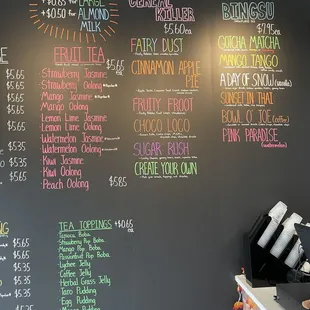 +$0.85 FOR LARGE
+$0.50 FOR
ALMOND
MILK
$5.65
$5.65
$5.65
$5.65
$5.65
$5.35
$5.35
FRUIT TEA
$5.65
Strawberry Jasmine
Strawberry Oolong
Mango Jasmine
Mango Oolong
Lemon Lime Jasmine
Lemon Lime Oolong
Watermelon Jasmine
Watermelon Oolong
Kiwi Jasmine
Kiwi Oolong
Peach Oolong
$5.85
CEREAL
KILLER
$5.60ea
FAIRY DUST
CINNAMON APPLE
PIE
FRUITY FROOT
CHOCO LOCO
SUGAR RUSH
CREATE YOUR OWN
BINGSU
$7.95ea
GOTCHA MATCHA
MANGO TANGO
A DAY OF SNOW (vanilla)
SUNSET IN THAI
BOWL O' JOE (coffee)
PINK PARADISE
(watermelon)
$5.65
$5.65
$5.35
$5.35
TEA TOPPINGS +$0.65
Tapioca Boba
Strawberry Pop Boba
Mango Pop Boba
Passionfruit Pop Boba
Lychee Jelly
Coffee Jelly
Herbal Grass Jelly
Taro Pudding
Egg Pudding